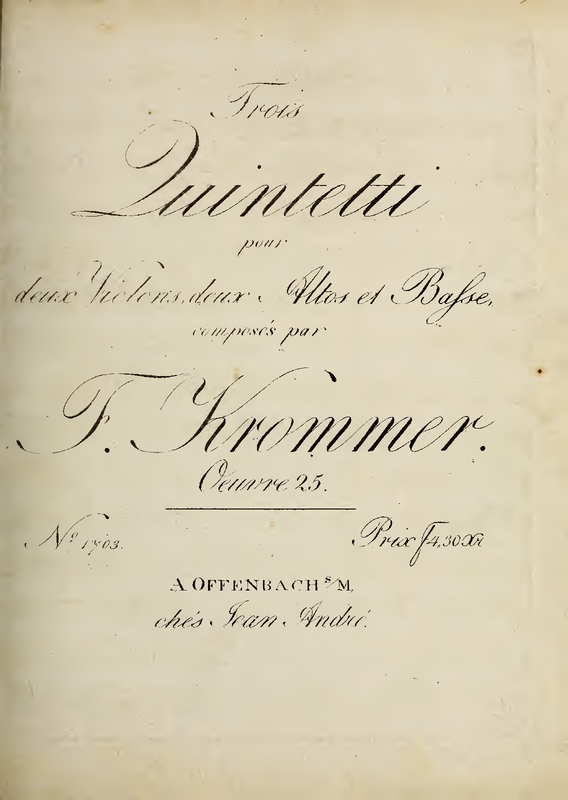 Trois
Quintetti
pour
deux Violons, deux Altos et Basse,
composés par
F. Krommer.
Oeuvre 25.
Nº 1703. Prix f 4,30 Xr
A OFFENBACH s/M,
chés Jean André.